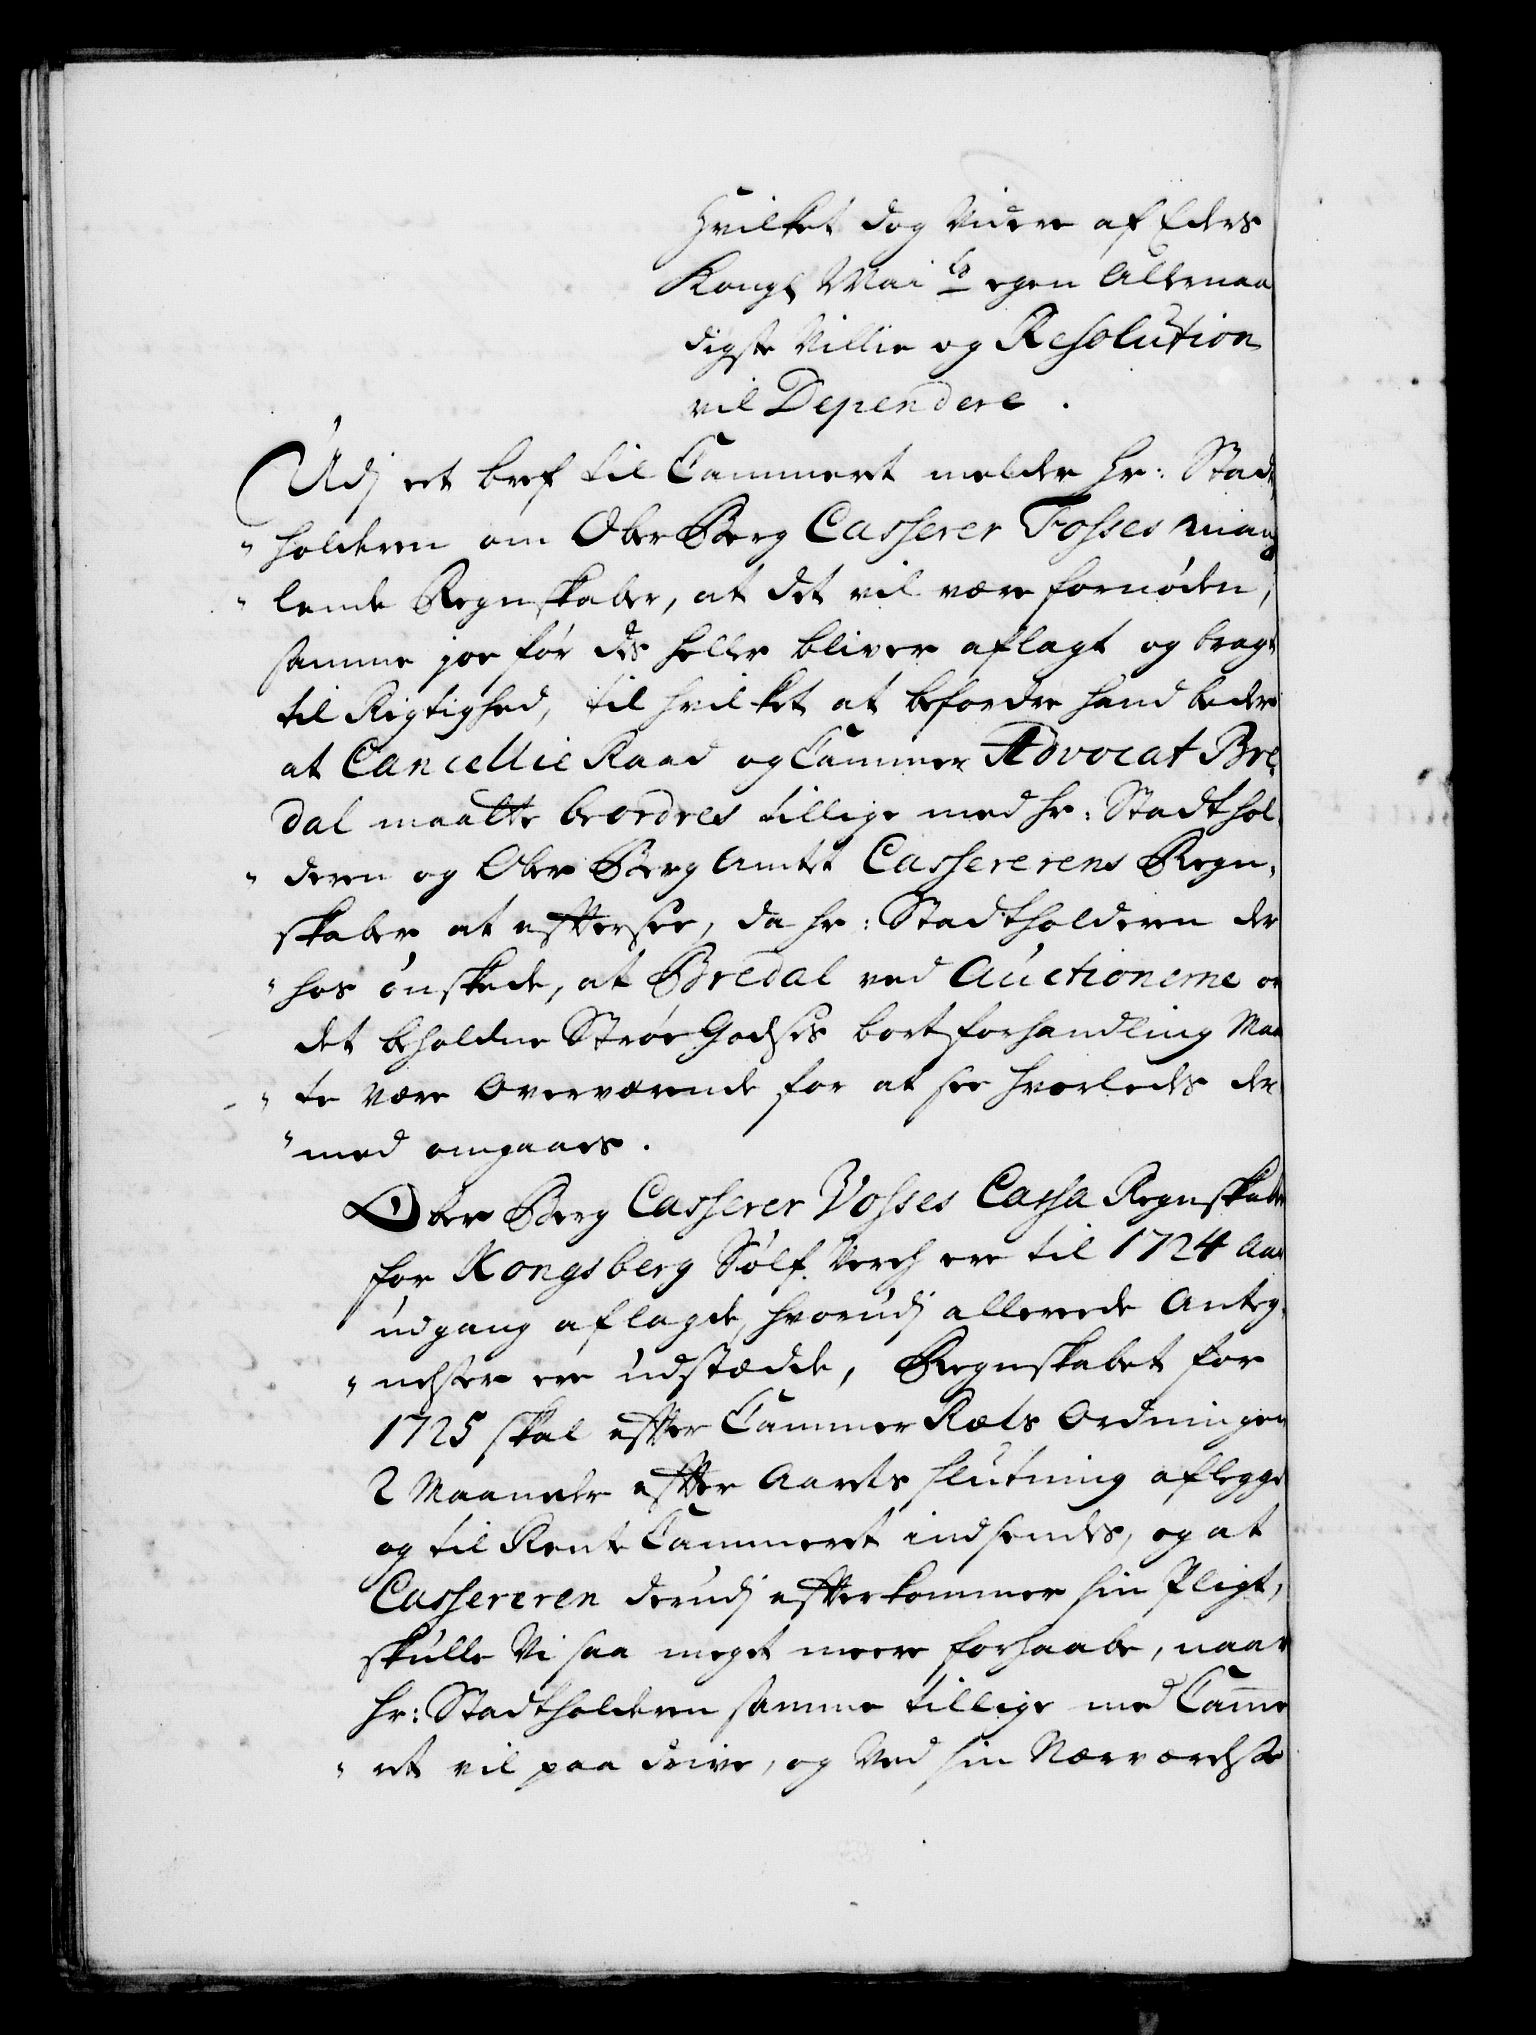 Hvilket dog Videre af Eders
Kongl Mai ts egen Allernaa
digste Villie og Resolution
vil Dependere.
Udj eet bref til Cammeret melder Hr: Stadt
" holderen om Ober Berg Casserer Fosses mang
" lende Regnskaber, at det vil være fornøden,
samme joe før des heller bliver aflagt og bragt
til Rigtighed, til hvilket at befordre hand beder
at Cancellie Raad og Cammer Advocat Bre,
dal maatte beordres tillige med Hr: Stadthol,
" deren og Ober Berg Amtet Cassererens Regn,
skaber at efftersee, da Hr: Stadtholderen der
" hos ønskede, at Bredal ved Auctionerne o
det beholdne Strøe Godses bortforhandling Maa
" te være Overværende for at see hvorledes der
" med omgaaes.
Ober Berg Casserer Vosses Cassa Regnskaber
for Kongsberg Sølf Verch ere til 1724 Aar
udgang aflagde, hvorudj allerede Anteg,
" nelser ere udstædde, Regnskabet for
1725 skal effter Cammer Rætts Ordningen
2 Maaneder effter Aarets slutning aflegge
og til Rente Cammeret indsendes, og at
Cassereren derudj effterkommer sin Pligt,
skulle Vi saa meget meere forhaabe, naar
Hr: Stadtholderen samme tillige med Camme
" ret vil paa drive, og Ved sin Nærværelse